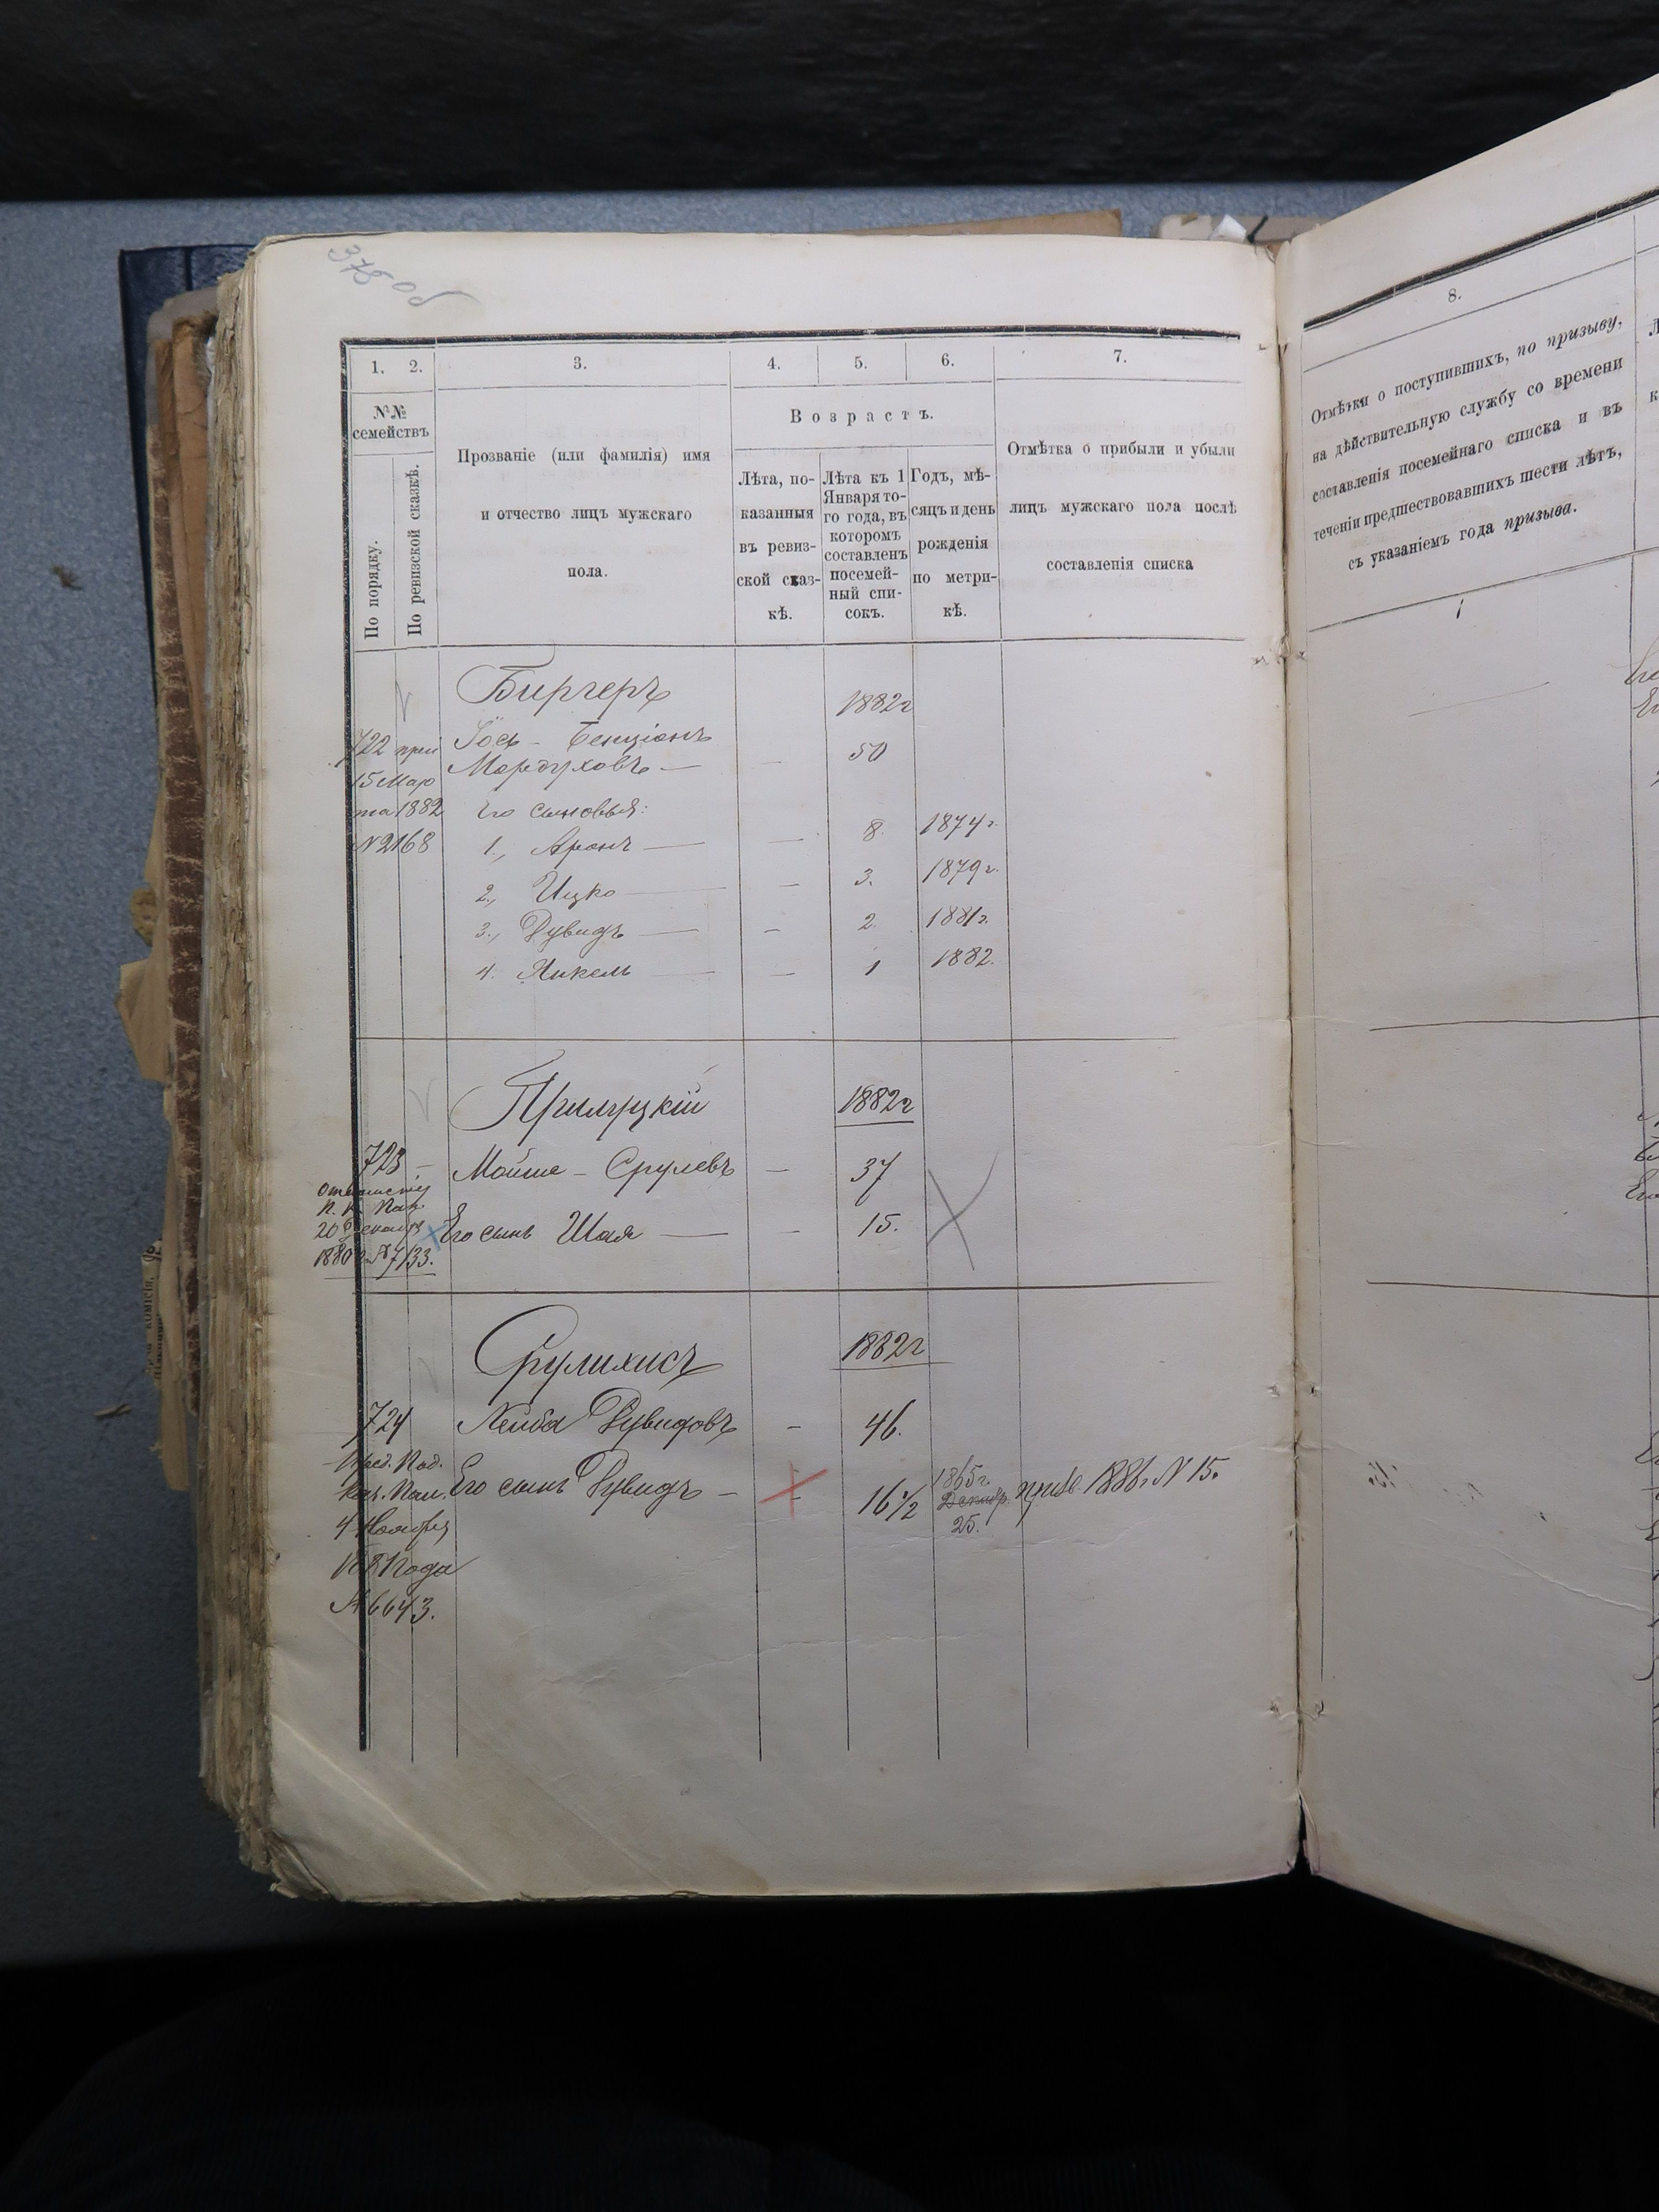 378 об
1. 2. 3. 4. 5. 6. 7.
№№ семействъ
По порядку.
По ревизской сказкѣ.
Прозваніе (или фамилія) имя
и отчество лицъ мужскаго
пола.
Возрастъ.
Лѣта, по-
казанныя
въ ревиз-
ской сказ-
кѣ.
Лѣта къ 1
Января то-
го года, въ
которомъ
составленъ
посемей-
ный спи-
сокъ.
Годъ, мѣ-
сяцъ и день
рожденія
по метри-
кѣ.
Отмѣтка о прибыли и убыли
лицъ мужскаго пола послѣ
составленія списка
Биргеръ 1882г
722 Іось - Бенціонъ 50
Мордуховъ —
15 Мар
та 1882 Его сыновья:
№2168 1., Аронъ — — 8. 1874г.
2., Ицко — — 3. 1879г.
3., Дувидъ — — 2. 1881г.
4. Янкель — — 1 1882.
Прилуцкій 1882г
723 - Мойше - Срулевъ — 37
К. Пал
20
1880 №7133. Его сынъ Шая — — 15.
Срулихисъ 1882г
724 Лейба Дувидовъ - 46.
Пред. Под.
Каз. Пал. Его сынъ Дувидъ - 16½ 1865г. Декабр. 25. 1886г. № 15.
4 Ноября
1881 года
№6643.
8.
Отмѣтки о поступившихъ, по призыву,
на дѣйствительную службу со времени
составленія посемейнаго списка и въ
теченіи предшествовавшихъ шести лѣтъ,
съ указаніемъ года призыва.